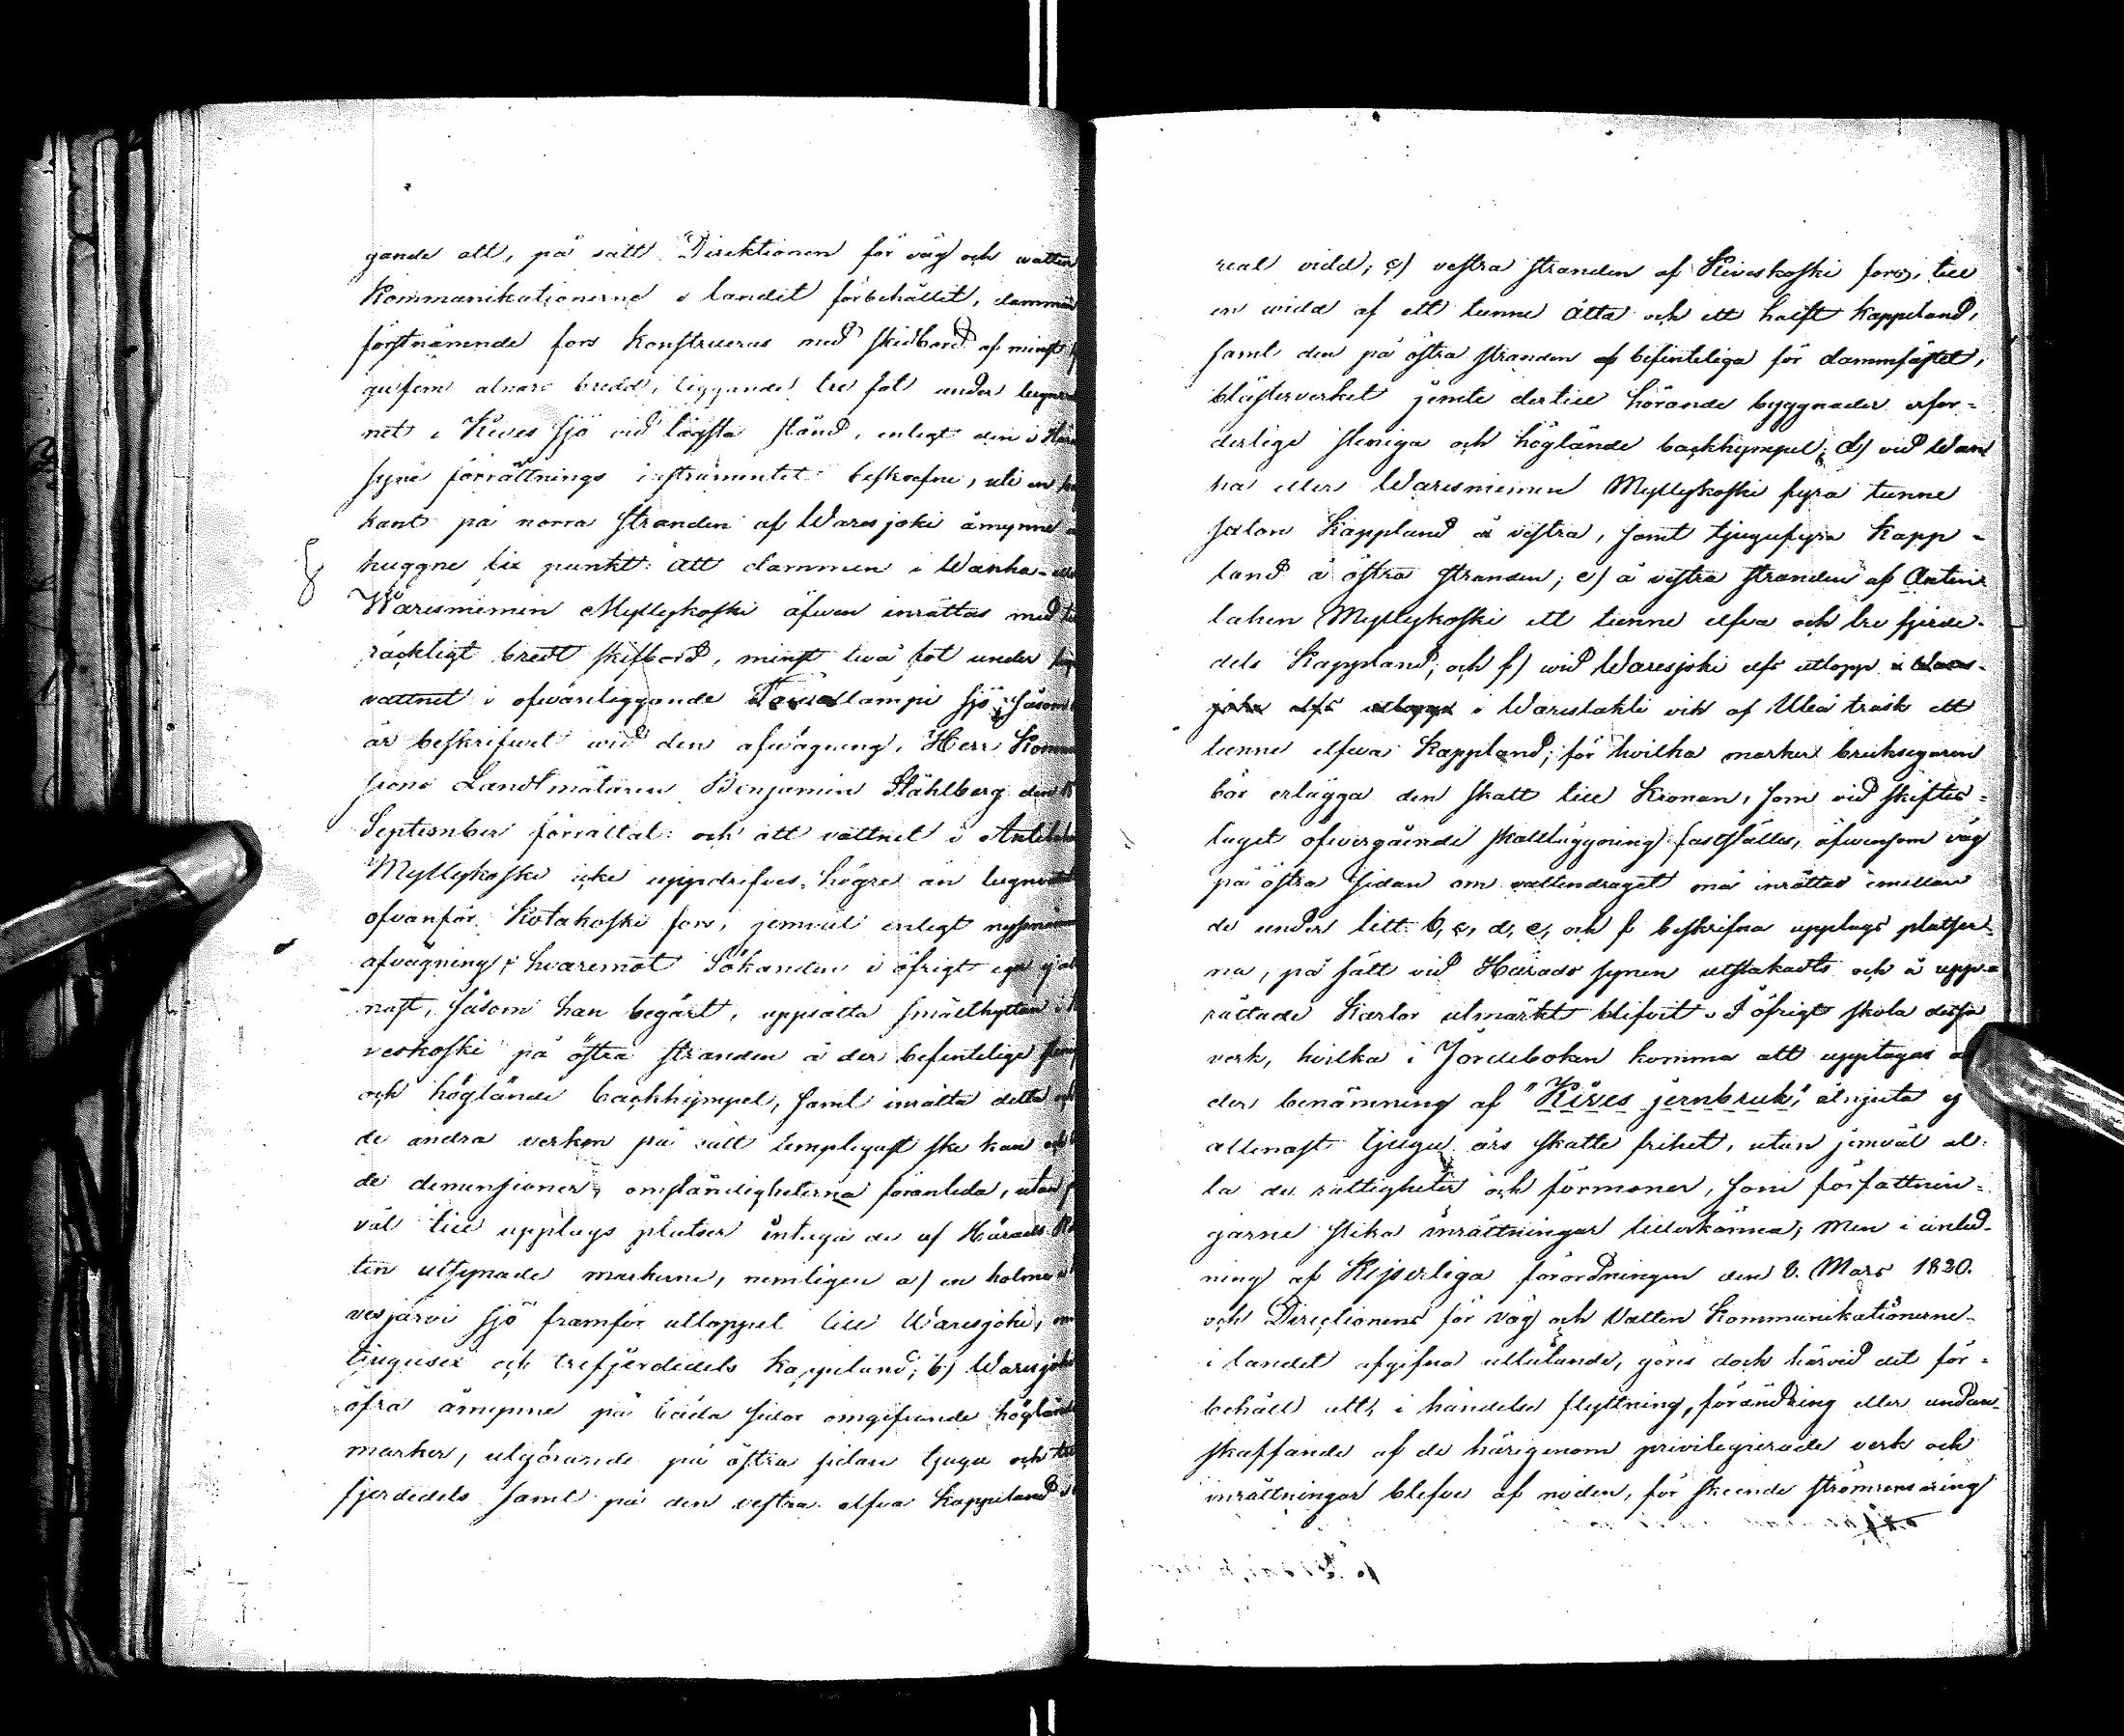 gande att, på sätt Direktionen för väg och watten
Kommunikationerne i landet förbehållit, dammen
förstnämnde fors konstrueras med skidbord af minst
gufem alnars bredd, liggande tre fot under lugnvatt
net i Kives sjö vid lägsta stånd, enligt den i Härads
syne förrättnings instrumentet beskrefne, uti en
kant på norra stranden af Waresjoki åmynne
huggne fix punkt: att dammen i Wanha- eller
Waresmemin Myllykoski äfwen inrättas med till
räckligt bredt skifbord, minst två fot under lugn
vattnet i ofvanliggande lampi sjö, såsom
är beskrifvet wid den afwägning, Herr Kommis
sions Landtmätaren Benjamin Ståhlberg den
September förrättat: och att vattnet i
Myllykoski icke uppdrifves högre än lugnvattnet
ofvanför Kotakoski fors, jemväl enligt nyssnämnde
afvägning; hvaremot Sökanden i öfrigt eger ej al
nast, såsom han begärt, uppsätta smälthyttan i Ki
veskoski på östra stranden å der befintelige
och höglände backhympel, samt inrätta detta och
de andra verken på sätt lempligast ske kan och
de dimensioner, omständigheterna föranleda, utan
väl till upplags platser intaga de af Härads Rät
ten utsynade markerne, nemligen a) en holme i
vesjärvi sjö framför utloppet till Waresjoki, om
tjugusex och trefjerdedels kappeland; b) Waresjoki
öfra åmynne på båda sidor omgifvande höglände
marker, utgörande på östra sidan tjugu och tre
fjerdedels samt på den vestra elfva kappeland i
real vidd; c) vestra stranden af Kiveskoski fors, till
en widd af ett tunne åtta och ett halft kappeland,
samt den på östra stranden befinteliga för dammfästet,
blåsterverket jemte dertill hörande byggnader erfor=
derlige steniga och höglände backhympel; d) vid Wan
ha eller Waresmemin Myllykoski fyra tunne
Kappland å vestra, samt tjugufyra Kapp=
land å östra stranden; e) å vestra stranden af Antin
lahen Myllykoski ett tunne elfva och tre fjerde=
dels Kappland; och f) wid Waresjoki elfs utlopp
i Wareslahti vik af Uleå träsk ett
tunne elfva Kappland; för hvilka marker bruksegaren
bör erlägga den skatt till Kronan, som vid skiftes=
laget öfvergående skattläggning fastställes, äfwensom väg
på östra sidan om vattendraget må inrättas imellan
de under litt. b, c, d, e, och f beskrifna upplags platser=
na, på sätt vid Härads synen utstakadts och å upp=
rättade Kartor utmärkt blifvit. I öfrigt skola dessa
verk, hvilka i Jordeboken komma att upptagas
der benämning af "Kives jernbruk", åtnjuta ej
allenast tjugu års skatte frihet, utan jemväl al=
la de rättigheter och förmoner, som författnin=
garne slika inrättningar tillerkänna; Men i anled=
ning af Kejserliga förordningen den 8. Mars 1820.
och Directionens för väg och vatten Kommunikationerne
i landet afgifna utlåtande, göres dock härvid det för=
behåll att, i händelse flyttning, förändring eller undan=
skaffande af de härigenom privilegierade verk och
inrättningar blefve af nöden, för skeende strömrensning